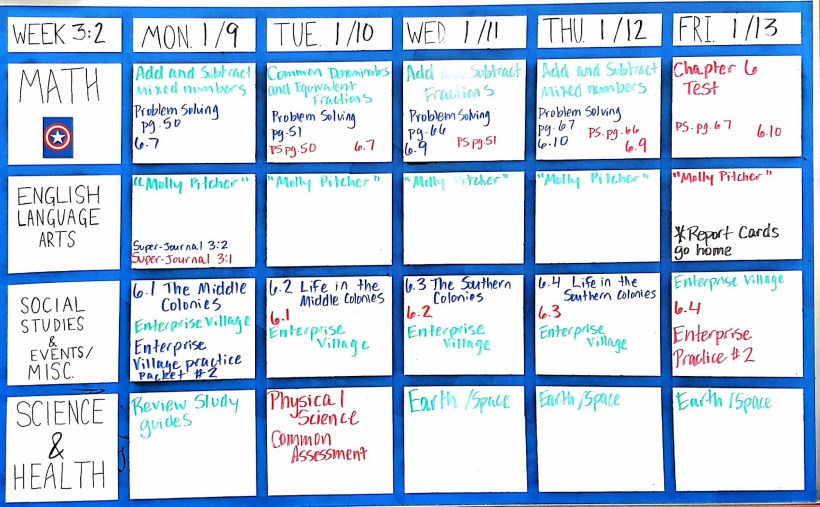 WEEK 3:2
MON. 1/9
TUE. 1/10
WED 1/11
THU. 1/12
FRI. 1/13
MATH
Add and Subtract
mixed numbers
Problem Solving
pg. 50
6.7
Common Denominators
and Equivalent
Fractions
Problem Solving
pg. 51
PS pg. 50 6.7
Add and Subtract
Fractions
Problem Solving
pg. 66
6.9 PS pg. 51
Add and Subtract
mixed numbers
Problem Solving
pg. 67 PS. pg. 66
6.10 6.9
Chapter 6
Test
PS. pg. 67 6.10
ENGLISH
LANGUAGE
ARTS
"Molly Pitcher"
Super-Journal 3:2
Super-Journal 3:1
"Molly Pitcher"
"Molly Pitcher"
"Molly Pitcher"
"Molly Pitcher"
*Report Cards
go home
SOCIAL
STUDIES
&
EVENTS/
MISC.
6.1 The Middle
Colonies
Enterprise Village
Enterprise
Village practice
packet #2
6.2 Life in the
Middle Colonies
6.1
Enterprise
Village
6.3 The Southern
Colonies
6.2
Enterprise
Village
6.4 Life in the
Southern Colonies
6.3
Enterprise
Village
Enterprise Village
6.4
Enterprise
Practice #2
SCIENCE
&
HEALTH
Review Study
guides
Physical
Science
Common
Assessment
Earth/Space
Earth/Space
Earth/Space